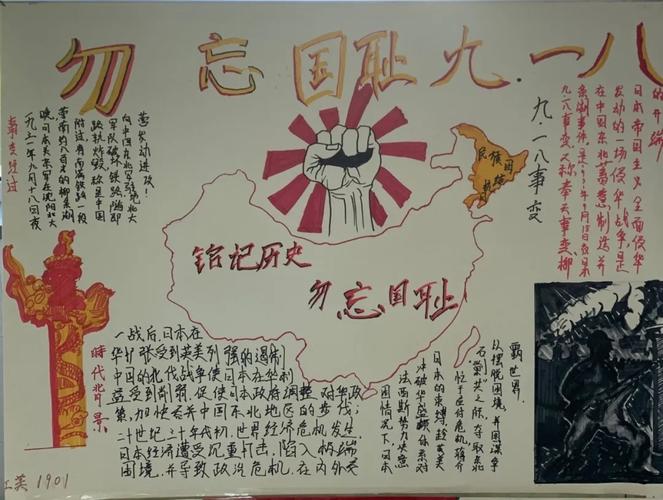 勿忘国耻九·一八
事变经过
一九三一年九月十八日夜
晚日本关东军在沈阳北大
营南约八百米的柳条湖
附近,将南满铁路一段
路轨炸毁,诬是中国
军队破坏铁路,随即
向中国东北军驻地北大
营发动进攻!
九·一八事变
九·一八事变(又称奉天事变、柳
条湖事件)是1931年9月18日夜日本
在中国东北蓄意制造并
发动的一场侵华战争,是
日本帝国主义全面侵华
的开端
民族国
铭记历史
勿忘国耻
时代背景
一战后,日本在
华扩张受到英美列强的遏制
中国的北伐战争使日本在华利
益受到削弱,促使日本政府调整对华政
策,加快吞并中国东北地区的步伐;
二十世纪三十年代初,世界经济危机发生
日本经济遭受沉重打击,陷入极端
困境,并导致政治危机,在内外交
困情况下,日本
法西斯势力决意
冲破华盛顿体系对
日本的束缚,趁英美
忙于应付危机,蒋介
石剿共之际,夺取东北
以摆脱困境,并图谋争
霸世界.
1901